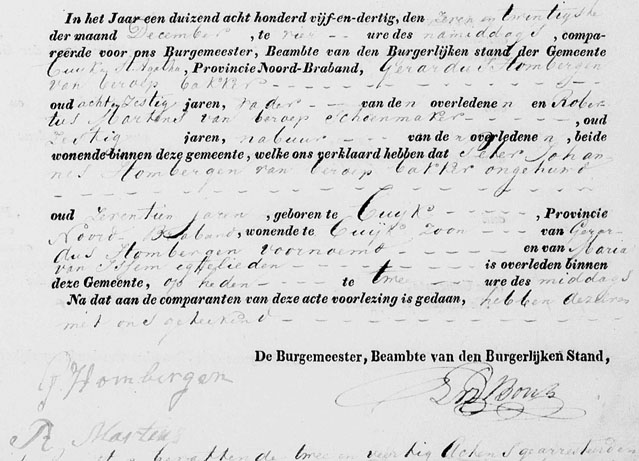 In het Jaar een duizend acht honderd vijf-en-dertig, den zeven en twintigste
der maand December, te vier ure des namiddags, compa-
reerde voor ons Burgemeester, Beambte van den Burgerlijken stand der Gemeente
Cuyk St Agatha, Provincie Noord-Braband, Gerardus Hombergen
van beroep bakker
oud acht zestig jaren, vader van den overledenen en Rober-
tus Martens van beroep schoenmaker, oud
zestig jaren, nabuur van den overledenen, beide
wonende binnen deze gemeente, welke ons verklaard hebben dat Peter Johan-
nes Hombergen van beroep bakker ongehuwd
oud zeventien jaren, geboren te Cuyk, Provincie
Noord Braband, wonende te Cuyk zoon van Gerar-
dus Hombergen voornoemd en van Maria
van echtelieden is overleden binnen
deze Gemeente, op heden te twee ure des middags
Na dat aan de comparanten van deze acte voorlezing is gedaan, hebben deze
met ons geteekend
De Burgemeester, Beambte van den Burgerlijken Stand,
G Hombergen
R. Martens
twee en veertig